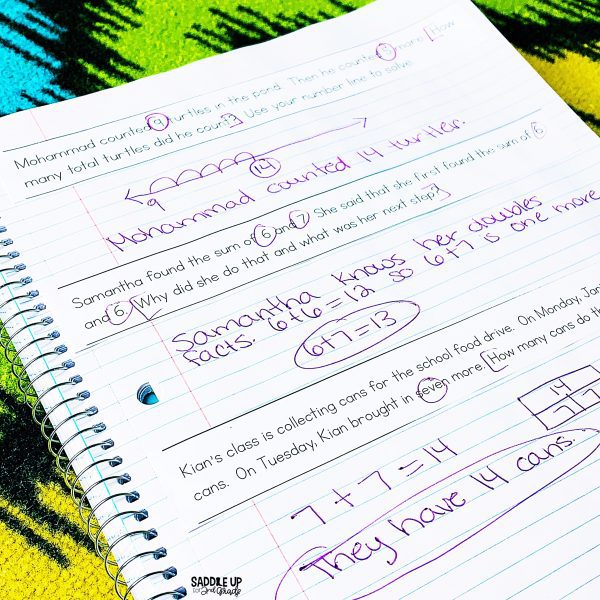 Mohammad counted 9 turtles in the pond. Then he counted 5 more. [How
many total turtles did he count?] Use your number line to solve.
9 14
Mohammad counted 14 turtles.
Samantha found the sum of 6 and 7. She said that she first found the sum of 6
and 6. [Why did she do that and what was her next step?]
Samantha knows her doubles
facts. 6+6=12 so 6+7 is one more
6+7=13
Kian's class is collecting cans for the school food drive. On Monday,
cans. On Tuesday, Kian brought in seven more. [How many cans do
14
7 7
7+7=14
They have 14 cans.
SADDLE UP
for 2nd Grade